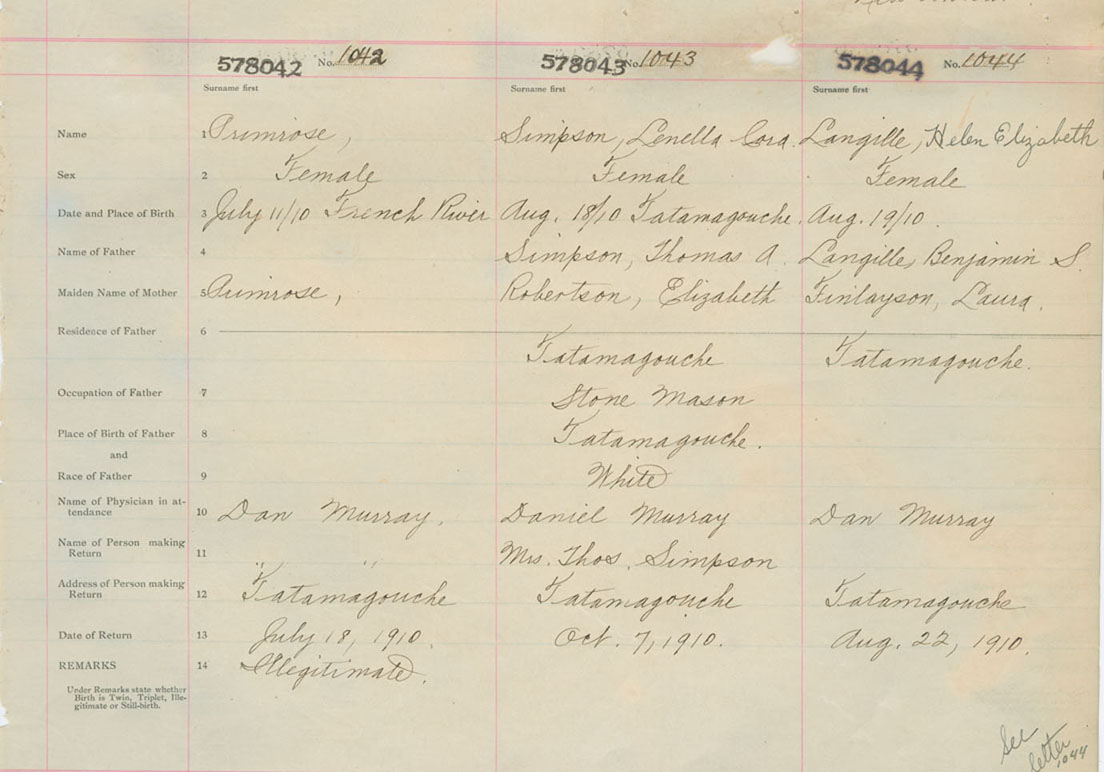 578042 No. 1042 578043 No. 1043 578044 No. 1044
Surname first Surname first Surname first
Name 1 Primrose, Simpson, Lenella Cora. Langille, Helen Elizabeth
Sex 2 Female Female Female
Date and Place of Birth 3 July 11/10 French River Aug. 18/10 Tatamagouche. Aug. 19/10.
Name of Father 4 Simpson, Thomas A. Langille, Benjamin S.
Maiden Name of Mother 5 Primrose, Robertson, Elizabeth Finlayson, Laura.
Residence of Father 6
Tatamagouche Tatamagouche.
Occupation of Father 7 Stone Mason
Place of Birth of Father 8 Tatamagouche.
and
Race of Father 9 White
Name of Physician in at-
tendance 10 Dan Murray. Daniel Murray Dan Murray
Name of Person making
Return 11 " " Mrs. Thos. Simpson
Address of Person making
Return 12 Tatamagouche Tatamagouche Tatamagouche
Date of Return 13 July 18, 1910. Oct. 7, 1910. Aug. 22, 1910.
REMARKS 14 Illegitimate.
Under Remarks state whether
Birth is Twin, Triplet, Ille-
gitimate or Still-birth.
See
letter
1044